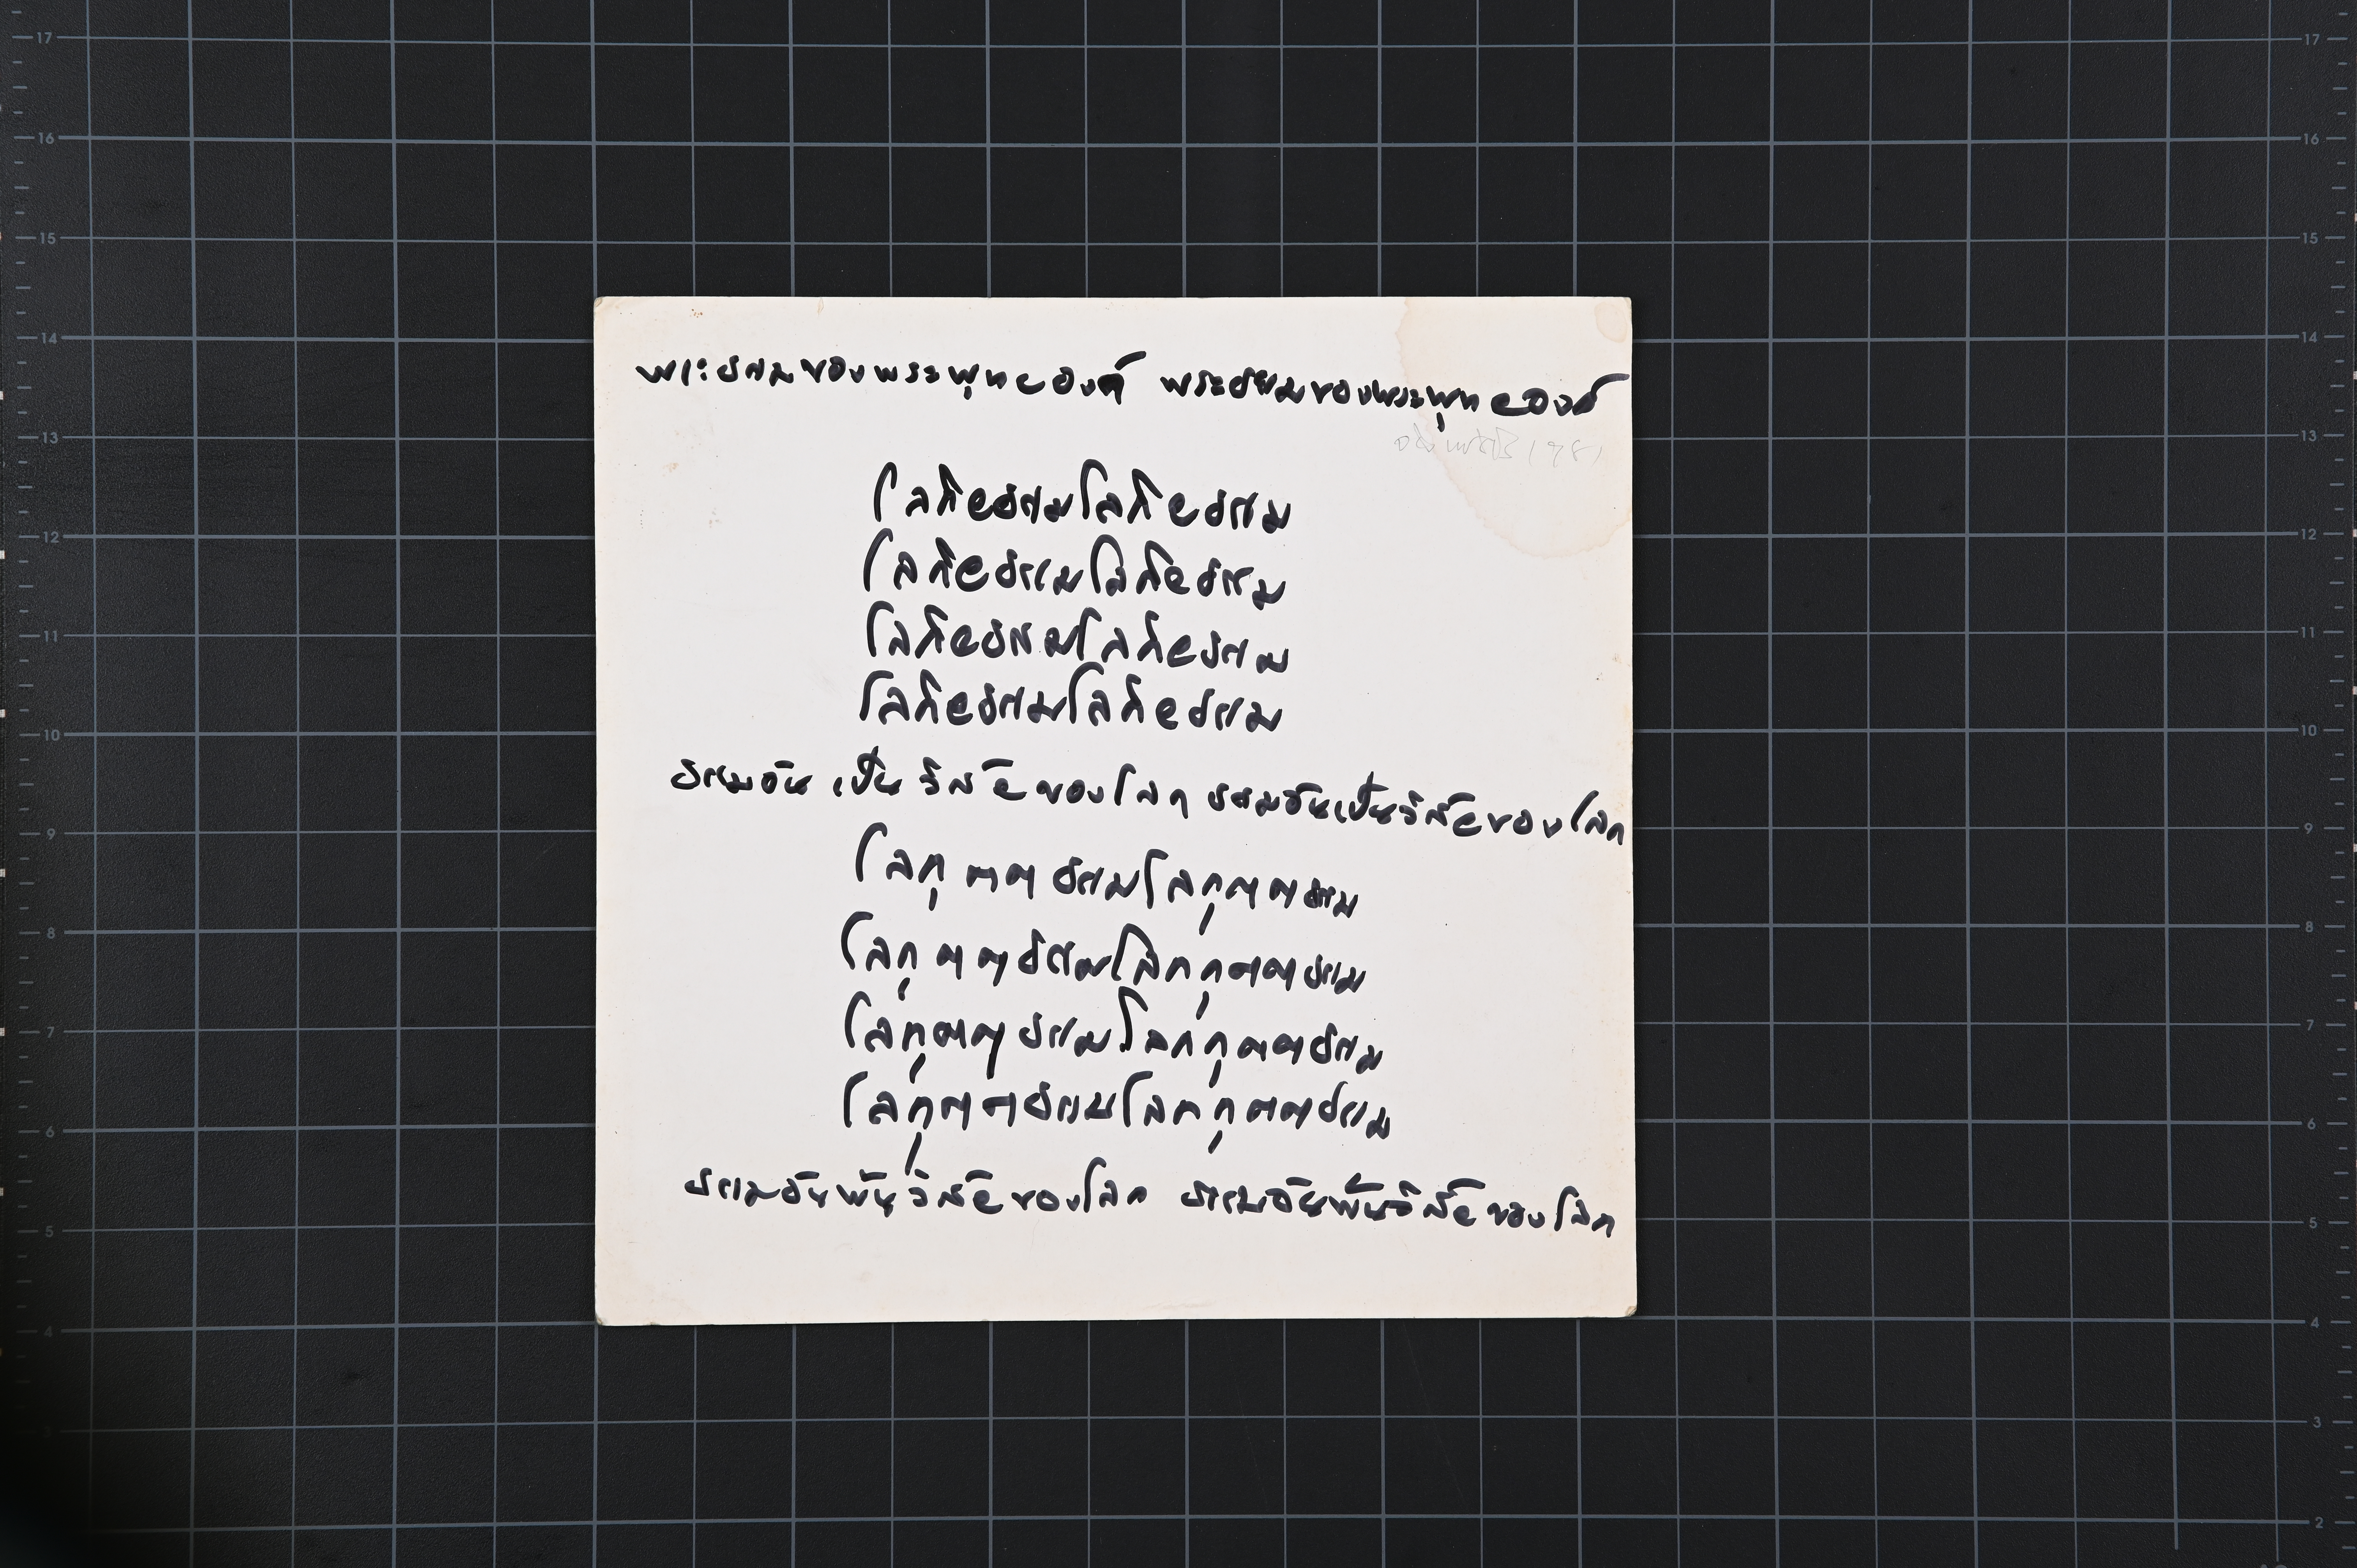 พระธรรมของพระพุทธองค์ พระธรรมของพระพุทธองค์
โลกียธรรมโลกียธรรม
โลกียธรรมโลกียธรรม
โลกียธรรมโลกียธรรม
โลกียธรรมโลกียธรรม
ธรรมอันเป็นวิสัยของโลก ธรรมอันเป็นวิสัยของโลก
โลกุตตธรรมโลกุตตธรรม
โลกุตตธรรมโลกกุตตธรรม
โลกุตตธรรมโลกกุตตธรรม
โลกุตตธรรมโลกกุตตธรรม
ธรรมอันพ้นวิสัยของโลก ธรรมอันพ้นวิสัยของโลก